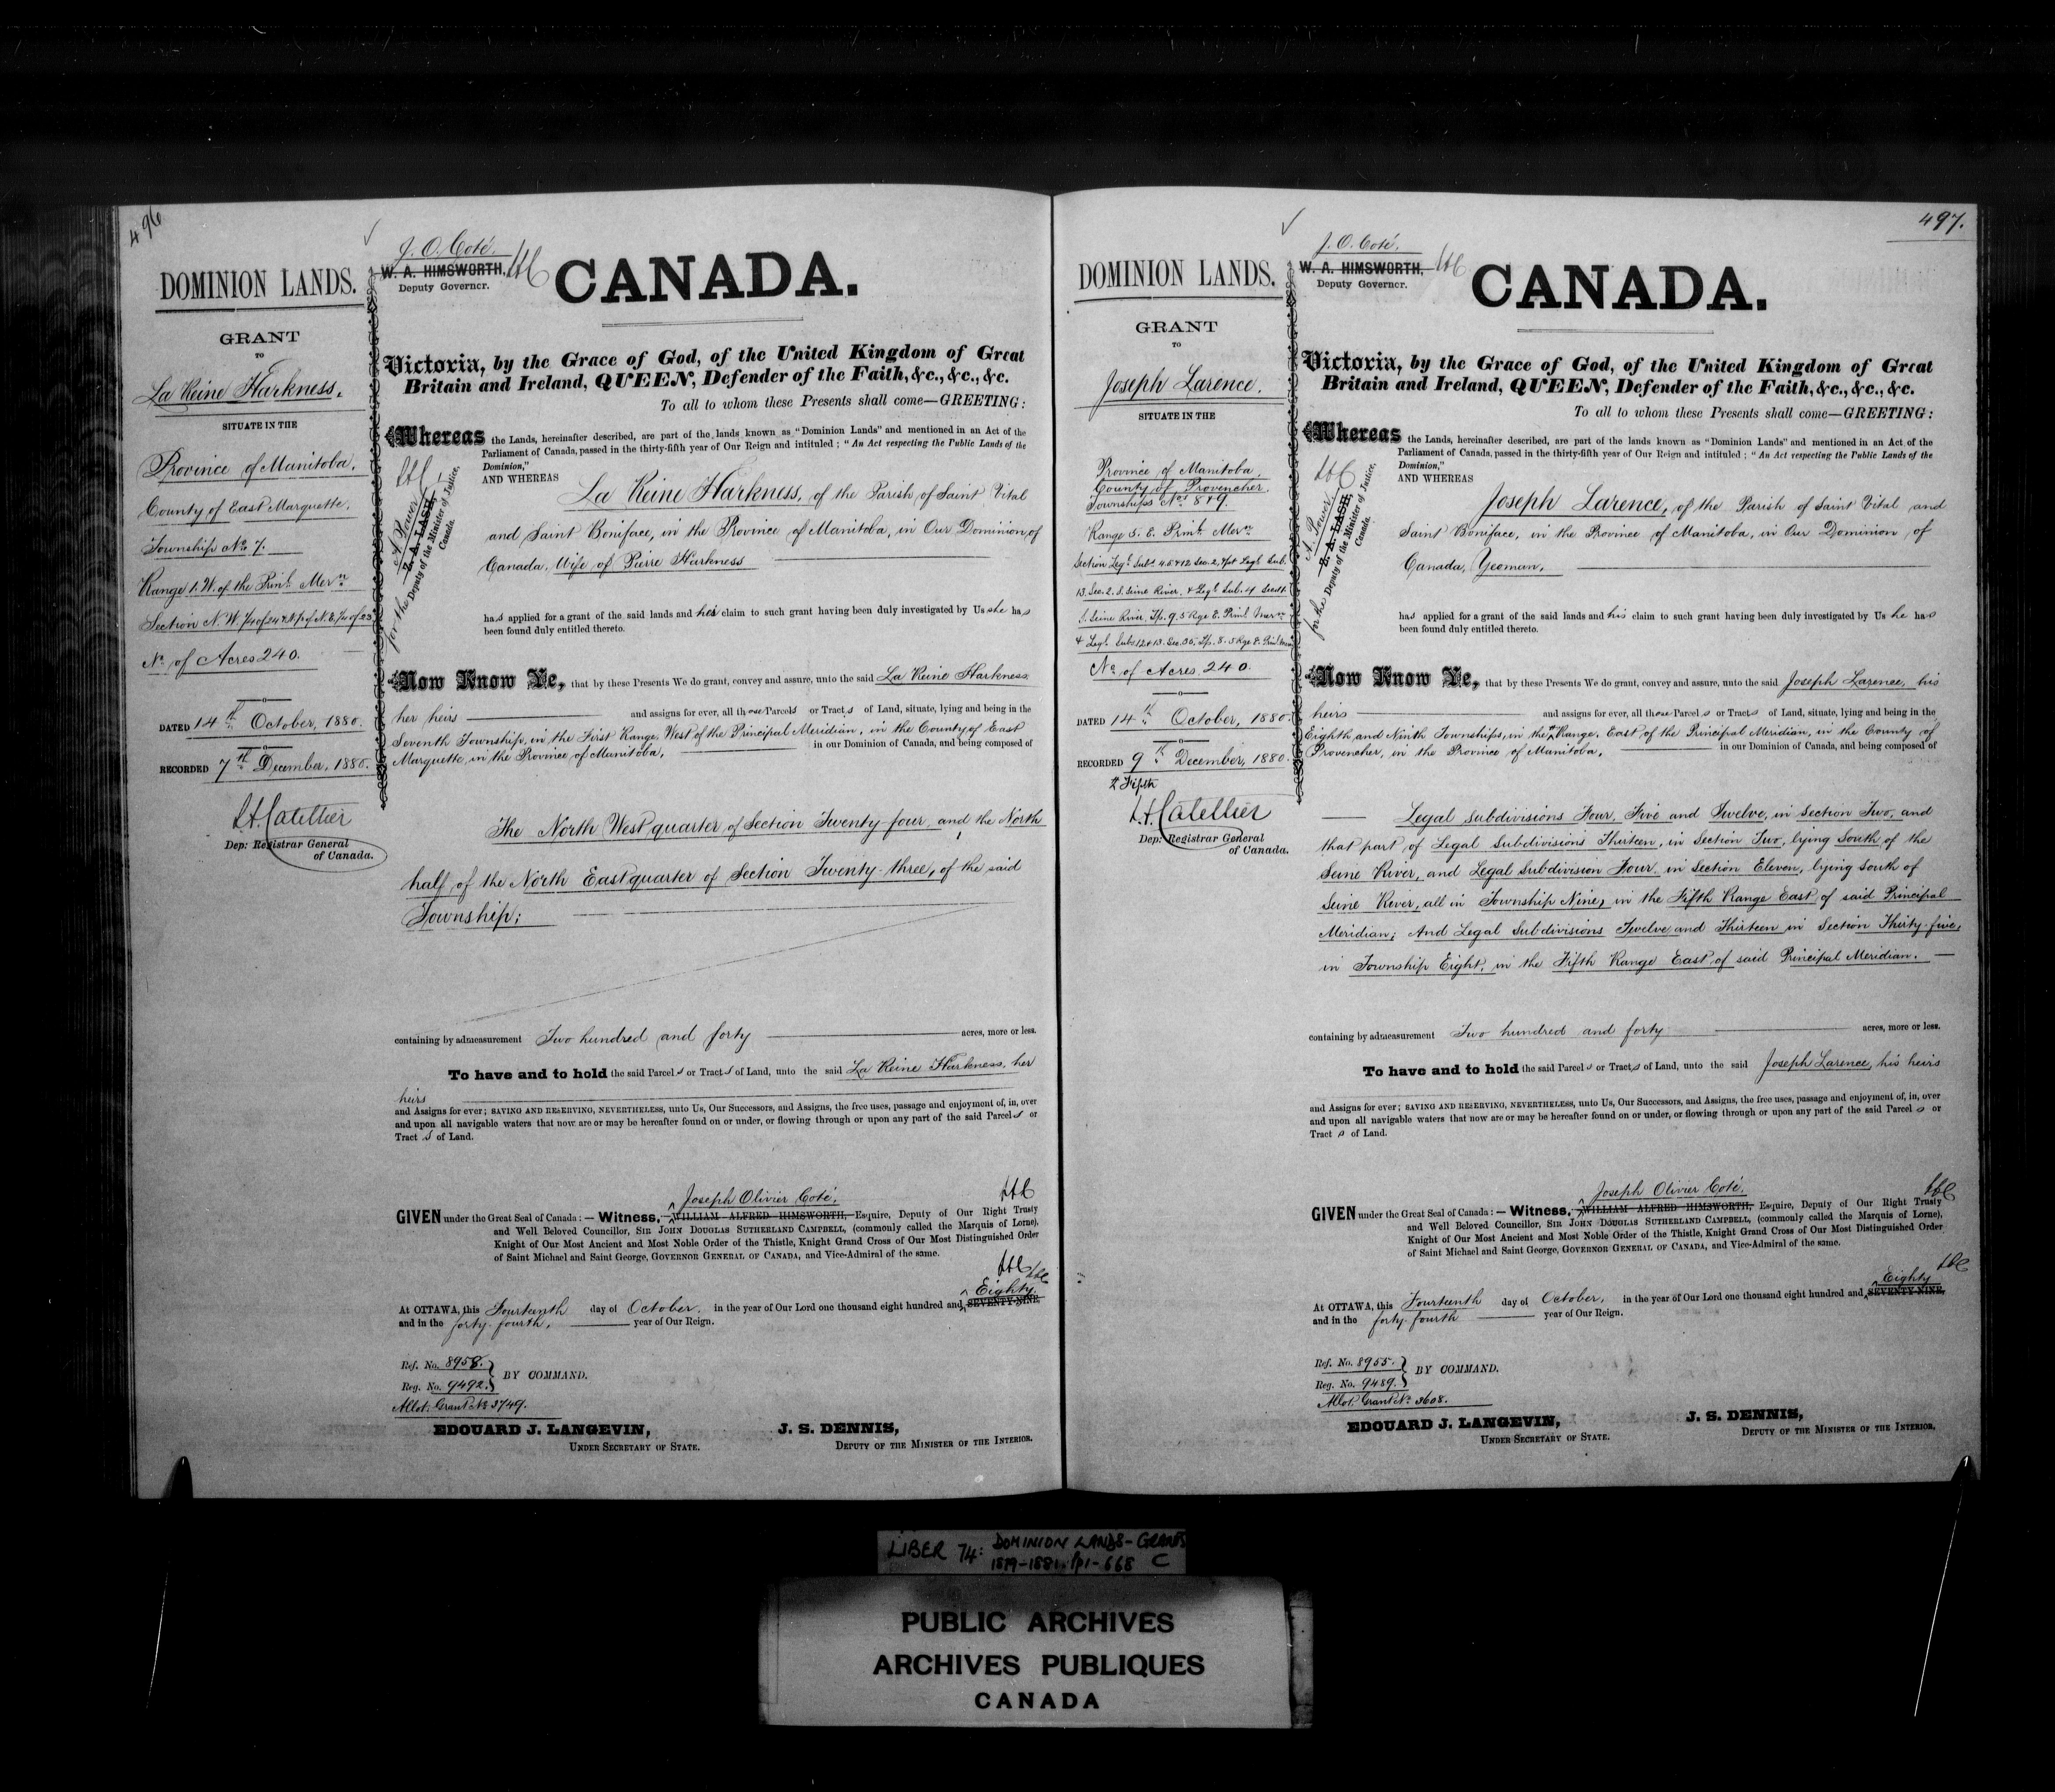 496
DOMINION LANDS.
GRANT
TO
La Reine Harkness.
SITUATE IN THE
Province of Manitoba.
County of East Marquette.
Township No 7.
Range 1. W. of the Prinl. Mern
Section N. W. 1/4 of 24 & N. 1/2 of N. E. 1/4 of 23
No. of Acres 240.
DATED 14th October, 1880.
RECORDED 7th December, 1880.
L.A. Catellier
Dep: Registrar General
of Canada.
J. O. Coté.
W. A. HIMSWORTH, LAC
Deputy Governor.
CANADA.
Victoria, by the Grace of God, of the United Kingdom of Great
Britain and Ireland, QUEEN, Defender of the Faith, &c., &c., &c.
To all to whom these Presents shall come—GREETING:
Whereas the Lands, hereinafter described, are part of the lands known as "Dominion Lands" and mentioned in an Act of the
Parliament of Canada, passed in the thirty-fifth year of Our Reign and intituled; "An Act respecting the Public Lands of the
Dominion,"
LAC
A Power
Z. A. LASH,
for the Deputy of the Minister of Justice,
Canada.
AND WHEREAS La Reine Harkness, of the Parish of Saint Vital
and Saint Boniface, in the Province of Manitoba, in Our Dominion of
Canada, Wife of Pierre Harkness
has applied for a grant of the said lands and her claim to such grant having been duly investigated by Us she has
been found duly entitled thereto.
Now Know Ye, that by these Presents We do grant, convey and assure, unto the said La Reine Harkness
her heirs and assigns for ever, all those Parcels or Tracts of Land, situate, lying and being in the
Seventh Township, in the First Range, West of the Principal Meridian, in the County of East
Marquette, in the Province of Manitoba, in our Dominion of Canada, and being composed of
The North West quarter of Section Twenty four, and the North
half of the North East quarter of Section Twenty-three, of the said
Township;
containing by admeasurement Two hundred and forty acres, more or less.
To have and to hold the said Parcels or Tracts of Land, unto the said La Reine Harkness, her
heirs
and Assigns for ever; SAVING AND RESERVING, NEVERTHELESS, unto Us, Our Successors, and Assigns, the free uses, passage and enjoyment of, in, over
and upon all navigable waters that now are or may be hereafter found on or under, or flowing through or upon any part of the said Parcels or
Tract s of Land.
Joseph Olivier Coté, LAC
GIVEN under the Great Seal of Canada:—Witness, WILLIAM ALFRED HIMSWORTH, Esquire, Deputy of Our Right Trusty
and Well Beloved Councillor, SIR JOHN DOUGLAS SUTHERLAND CAMPBELL, (commonly called the Marquis of Lorne),
Knight of Our Most Ancient and Most Noble Order of the Thistle, Knight Grand Cross of Our Most Distinguished Order
of Saint Michael and Saint George, GOVERNOR GENERAL OF CANADA, and Vice-Admiral of the same.
LAC LAC
Eighty.
At OTTAWA, this Fourteenth day of October. in the year of Our Lord one thousand eight hundred and SEVENTY-NINE,
and in the forty-fourth. year of Our Reign.
Ref. No. 8958.
BY COMMAND.
Reg. No. 9492.
Allot: Grant No 3749.
EDOUARD J. LANGEVIN,
UNDER SECRETARY OF STATE.
J. S. DENNIS,
DEPUTY OF THE MINISTER OF THE INTERIOR.
497.
DOMINION LANDS.
GRANT
TO
Joseph Larence.
SITUATE IN THE
Province of Manitoba.
County of Provencher.
Townships Nos 8 & 9.
Range 5. E. Prinl. Mern
Section Legl. Subs. 4.5 & 12 Sec. 2, & pt Legl. Sub.
13, Sec. 2. S. Seine River, & Legl. Sub. 4 Sec 11.
S. Seine River, Tp. 9. 5 Rge E. Prinl. Mern
& Legl. Subs 12 & 13. Sec. 35, Tp. 8. 5 Rge E. Prinl Mern
No of Acres, 240.
DATED 14th October, 1880.
RECORDED 9th December, 1880.
Fifth
L.A. Catellier
Dep: Registrar General
of Canada.
J. O. Coté.
W. A. HIMSWORTH, LAC
Deputy Governor.
CANADA.
Victoria, by the Grace of God, of the United Kingdom of Great
Britain and Ireland, QUEEN, Defender of the Faith, &c., &c., &c.
To all to whom these Presents shall come—GREETING:
Whereas the Lands, hereinafter described, are part of the lands known as "Dominion Lands" and mentioned in an Act of the
Parliament of Canada, passed in the thirty-fifth year of Our Reign and intituled; "An Act respecting the Public Lands of the
Dominion,"
LAC
A. Power,
Z. A. LASH,
for the Deputy of the Minister of Justice,
Canada.
AND WHEREAS
Joseph Larence, of the Parish of Saint Vital and
Saint Boniface, in the Province of Manitoba, in Our Dominion of
Canada, Yeoman,
has applied for a grant of the said lands and his claim to such grant having been duly investigated by Us he has
been found duly entitled thereto.
Now Know Ye, that by these Presents We do grant, convey and assure, unto the said Joseph Larence, his
heirs and assigns for ever, all those Parcels or Tracts of Land, situate, lying and being in the
Eighth and Ninth Townships, in the Range, East of the Principal Meridian, in the County of
Provencher, in the Province of Manitoba, in our Dominion of Canada, and being composed of
Legal Subdivisions Four, Five and Twelve, in Section Two, and
that part of Legal Subdivisions Thirteen, in Section Two, lying South of the
Seine River, and Legal Subdivision Four, in Section Eleven, lying South of
Seine River, all in Township Nine, in the Fifth Range East of said Principal
Meridian; And Legal Subdivisions Twelve and Thirteen in Section Thirty-five,
in Township Eight, in the Fifth Range East, of said Principal Meridian.
containing by admeasurement Two hundred and forty acres, more or less.
To have and to hold the said Parcels or Tracts of Land, unto the said Joseph Larence, his heirs
and Assigns for ever; SAVING AND RESERVING, NEVERTHELESS, unto Us, Our Successors, and Assigns, the free uses, passage and enjoyment of, in, over
and upon all navigable waters that now are or may be hereafter found on or under, or flowing through or upon any part of the said Parcel s or
Tract s of Land.
Joseph Olivier Coté, LAC
GIVEN under the Great Seal of Canada:—Witness, WILLIAM ALFRED HIMSWORTH, Esquire, Deputy of Our Right Trusty
and Well Beloved Councillor, SIR JOHN DOUGLAS SUTHERLAND CAMPBELL, (commonly called the Marquis of Lorne),
Knight of Our Most Ancient and Most Noble Order of the Thistle, Knight Grand Cross of Our Most Distinguished Order
of Saint Michael and Saint George, GOVERNOR GENERAL OF CANADA, and Vice-Admiral of the same.
Eighty LAC
At OTTAWA, this Fourteenth day of October. in the year of Our Lord one thousand eight hundred and SEVENTY-NINE,
and in the forty-fourth year of Our Reign.
Ref. No. 8955.
BY COMMAND.
Reg. No. 9489.
Allot: Grant No. 3608.
EDOUARD J. LANGEVIN,
UNDER SECRETARY OF STATE.
J. S. DENNIS,
DEPUTY OF THE MINISTER OF THE INTERIOR.
LIBER 74: DOMINION LANDS-GRANTS
1879-1881. pp1-668 C
PUBLIC ARCHIVES
ARCHIVES PUBLIQUES
CANADA